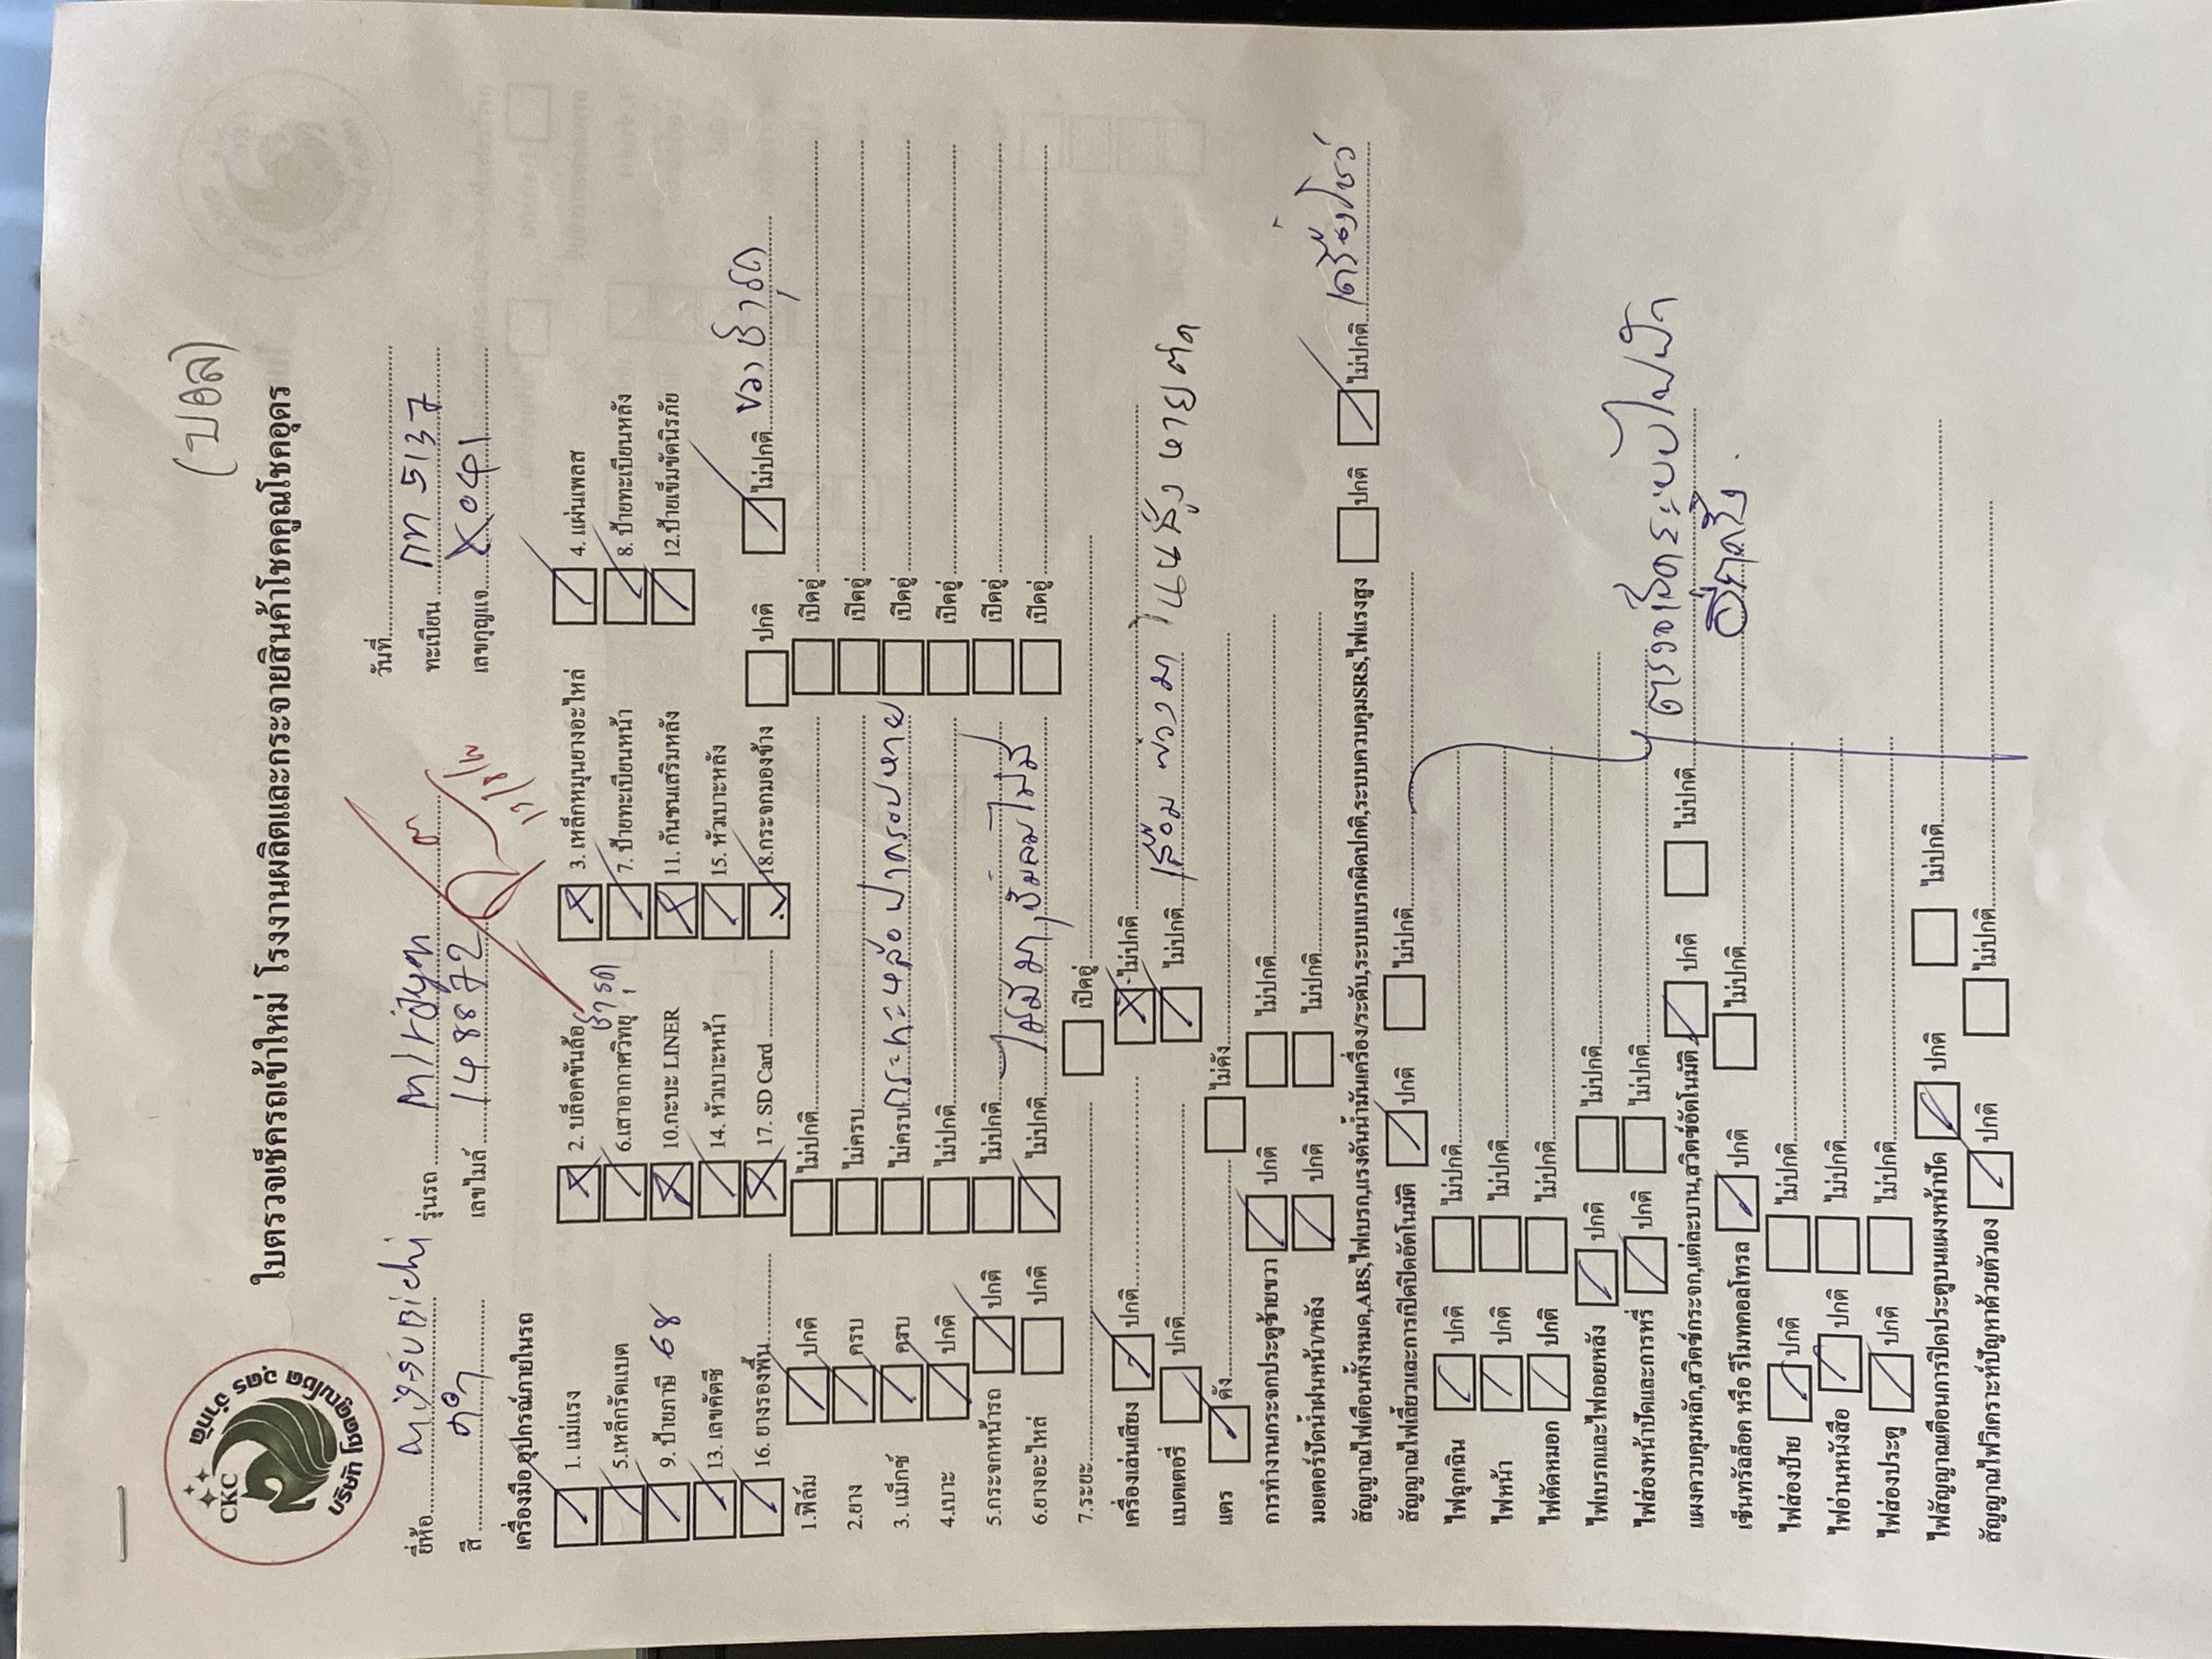 (บอล)
CKC
บริษัท โชคคูณโชค อุดร จำกัด
ใบตรวจเช็ครถเข้าใหม่ โรงงานผลิตและกระจายสินค้าโชคคูณโชคอุดร
วันที่
ยี่ห้อ mitsubichi รุ่นรถ Mirage ทะเบียน กท 5137
สี ดำ เลขไมล์ 148872 เลขกุญแจ X041
เครื่องมือ อุปกรณ์ภายในรถ
1. แม่แรง 2. บล็อคขันล้อ 3. เหล็กหมุนยางอะไหล่ 4. แผ่นเพลส
5.เหล็กรัคแบต 6.เสาอากาศวิทยุ ชำรุด 7. ป้ายทะเบียนหน้า 8. ป้ายทะเบียนหลัง
9. ป้ายภาษี 68 10.กะบะ LINER 11. กันชนเสริมหลัง 12.ป้ายเข็มขัดนิรภัย
13. เลขคัดซี 14. หัวเบาะหน้า 15. หัวเบาะหลัง
16. ยางรองพื้น 17. SD Card 18.กระจกมองข้าง ปกติ ไม่ปกติ ขวา ชำรุด
1.ฟิล์ม ปกติ ไม่ปกติ เปิดอู่
2.ยาง ครบ ไม่ครบ เปิดอู่
3. แม็กซ์ ครบ ไม่ครบ กระทะหล้อ ฝาครอบหาย เปิดอู่
4.เบาะ ปกติ ไม่ปกติ เปิดอู่
5.กระจกหน้ารถ ปกติ ไม่ปกติ เปิดอู่
6.ยางอะไหล่ ปกติ ไม่ปกติ ไม่มีมา,ปั๊มลมไม่มี เปิดอู่
7.ระยะ เปิดอู่
เครื่องเล่นเสียง ปกติ ไม่ปกติ
แบตเตอรี่ ปกติ ไม่ปกติ เสื่อม พ่วงมา
แตร ดัง ไม่ดัง
การทำงานกระจกประตูซ้ายขวา ปกติ ไม่ปกติ
มอเตอร์ปัดน้ำฝนหน้า/หลัง ปกติ ไม่ปกติ
สัญญาณไฟเตือนทั้งหมด,ABS,ไฟเบรก,แรงดันน้ำมันเครื่อง/ระดับ,ระบบเบรกผิดปกติ,ระบบควบคุมSRS,ไฟแรงสูง ปกติ ไม่ปกติ เครื่องโชว์
สัญญาณไฟเลี้ยวและการเปิดปิดอัตโนมัติ ปกติ ไม่ปกติ
ไฟฉุกเฉิน ปกติ ไม่ปกติ
ไฟหน้า ปกติ ไม่ปกติ
ไฟตัดหมอก ปกติ ไม่ปกติ
ไฟเบรกและไฟถอยหลัง ปกติ ไม่ปกติ
ไฟส่องหน้าปัดและการหรี่ ปกติ ไม่ปกติ
ตรวจเช็คระบบไฟฟ้า
อีกครั้ง
แผงควบคุมหลัก,สวิตซ์กระจก,แต่ละบาน,สวิตซ์อัตโนมัติ ปกติ ไม่ปกติ
เซ็นทรัลล็อค หรือ รีโมทคอลโทรล ปกติ ไม่ปกติ
ไฟส่องป้าย ปกติ ไม่ปกติ
ไฟอ่านหนังสือ ปกติ ไม่ปกติ
ไฟส่องประตู ปกติ ไม่ปกติ
ไฟสัญญาณเตือนการปิดประตูบนแผงหน้าปัด ปกติ ไม่ปกติ
สัญญาณไฟวิเคราะห์ปัญหาด้วยตัวเอง ปกติ ไม่ปกติ